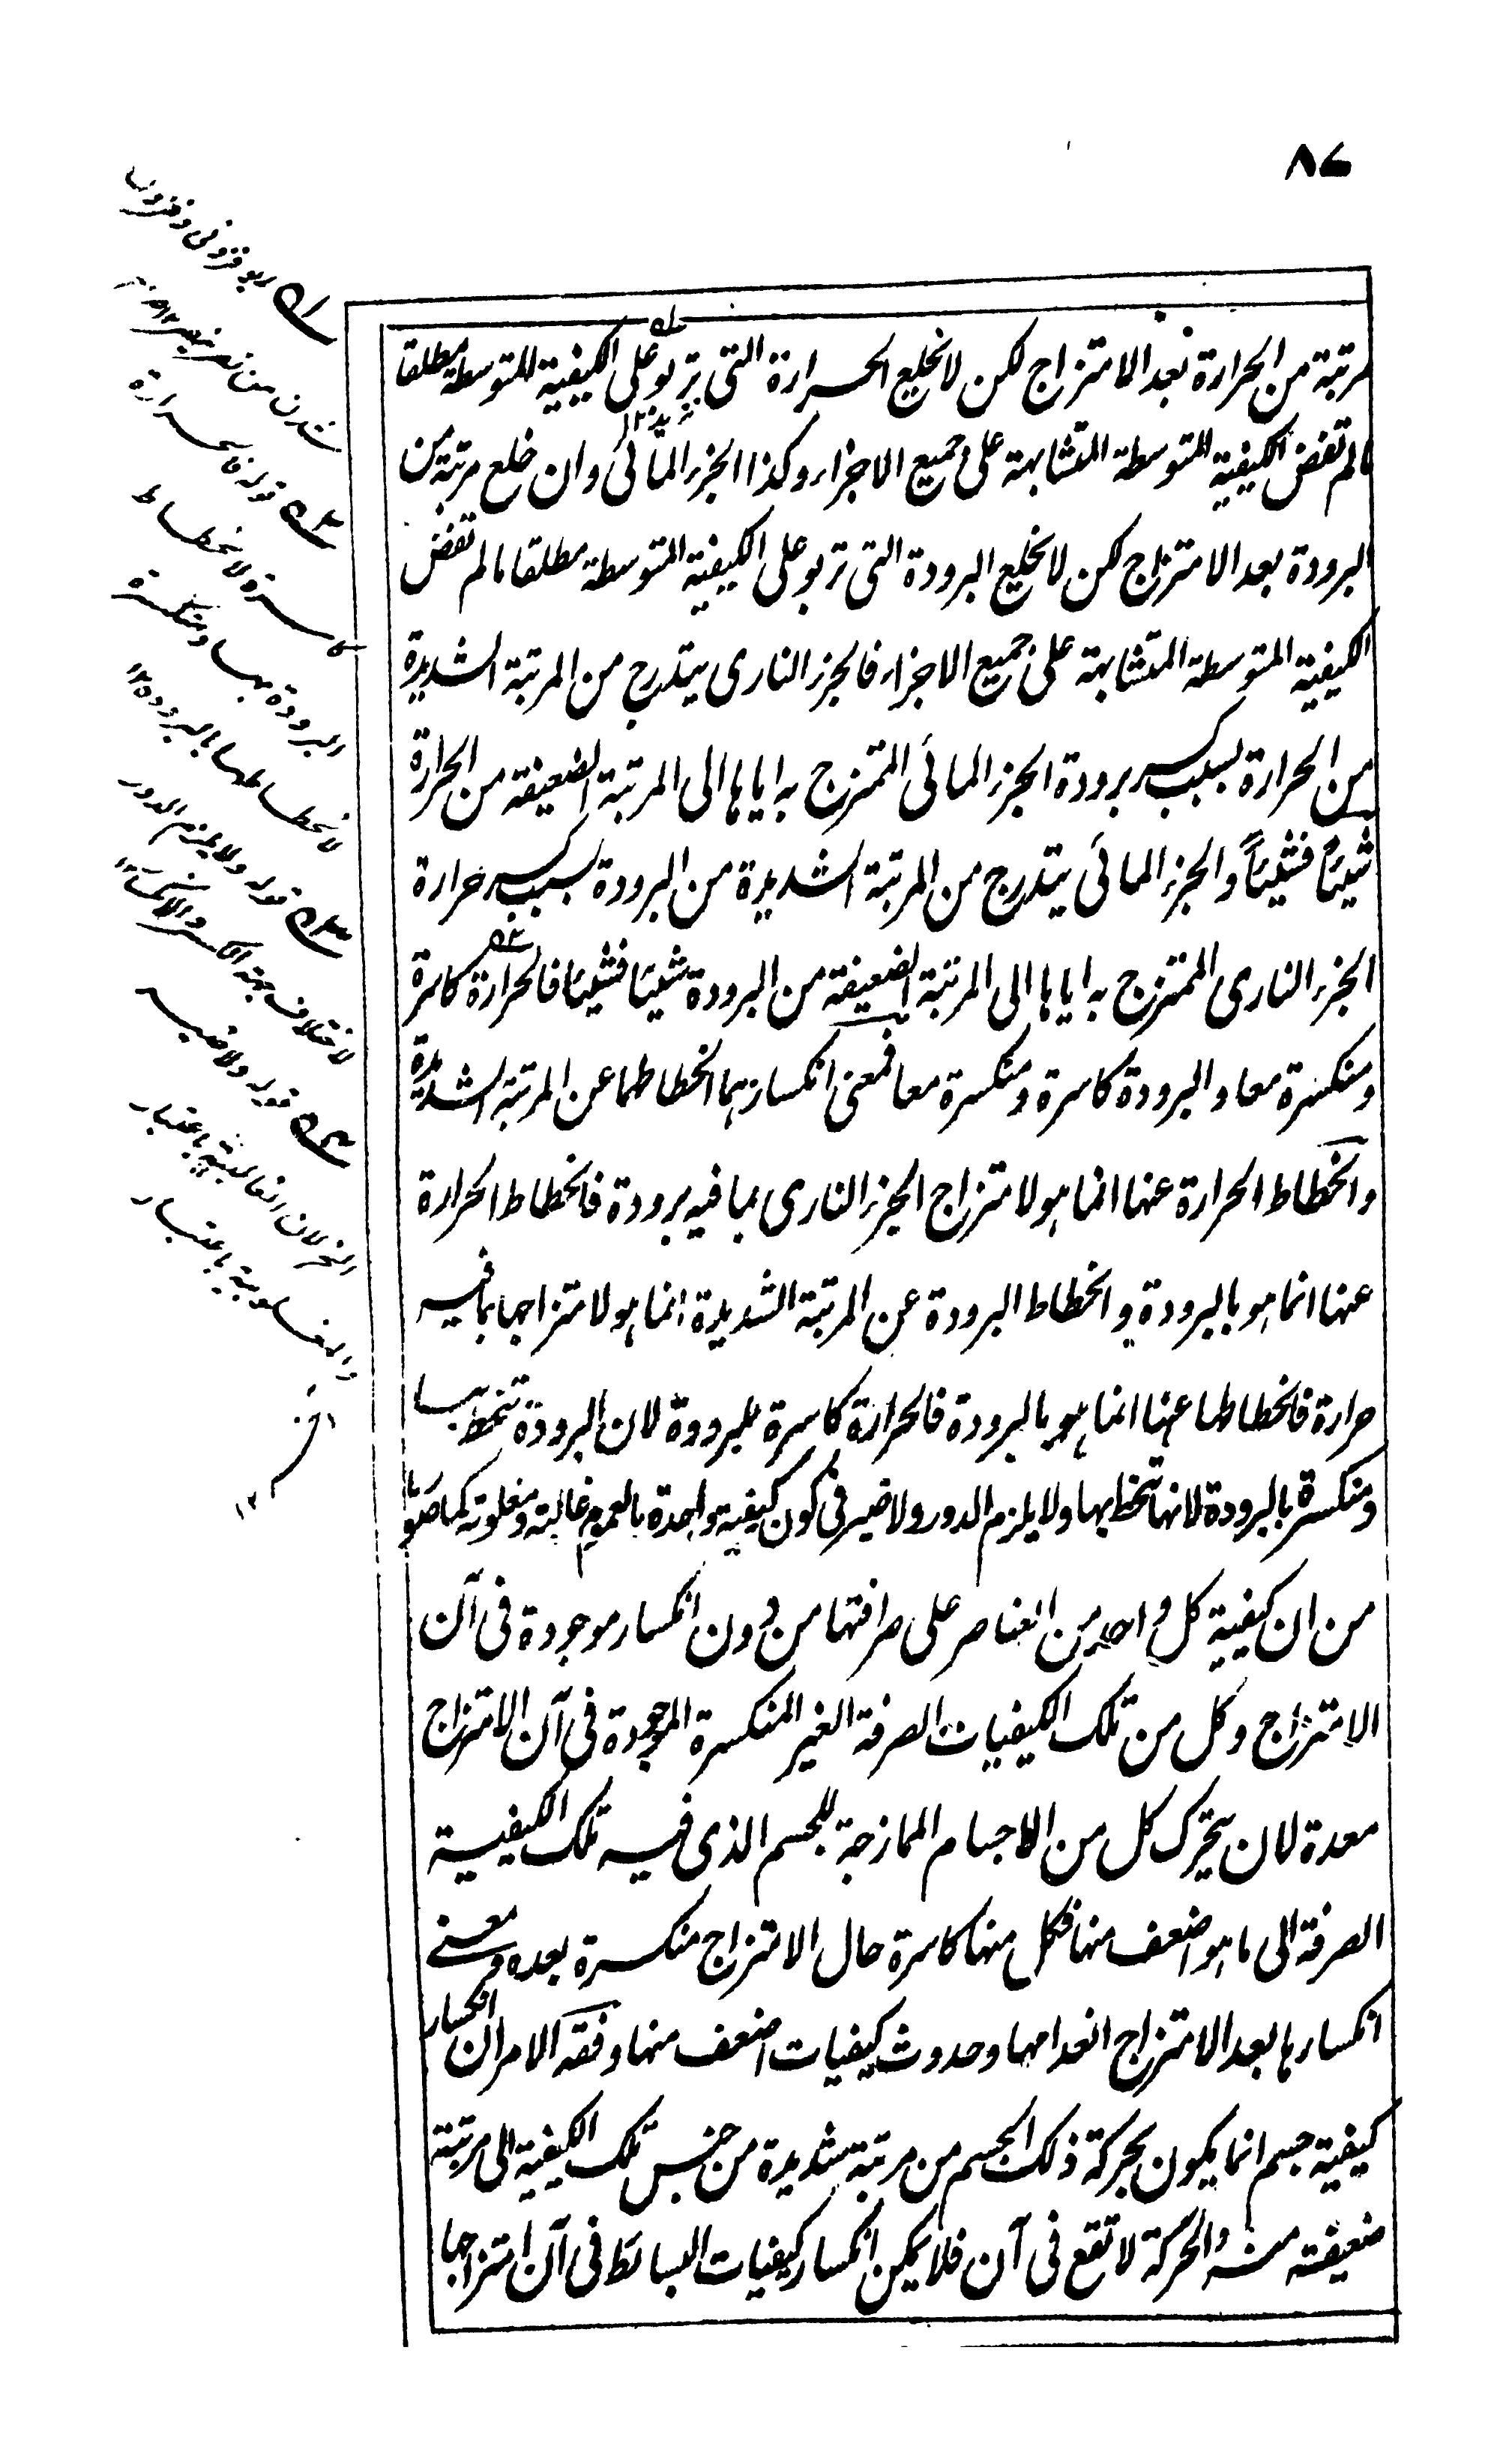 ٨٧
مرتبة من الحرارة بعد الامتزاج لكن لا تخلع الحرارة التى تربو على الكيفية المتوسطة مطلقا
مالم تفض الكيفية المتوسطة المتشابهة على جميع الاجزاء وكذا الجزء المائى وان خلع مرتبة من
البرودة بعد الامتزاج لكن لا يخلع البرودة التى تربو على الكيفية المتوسطة مطلقا مالم تفض
الكيفية المتوسطة المتشابهة على جميع الاجزاء فالجزء النارى يتدرج من المرتبة الشديدة
من الحرارة بسبب كسر برودة الجزء المائى الممتزج به اياها الى المرتبة الضعيفة من الحرارة
شيئا فشيئاً والجزء المائى يتدرج من المرتبة الشديدة من البرودة بسبب كسر حرارة
الجزء النارى الممتزج به اياها الى المرتبة الضعيفة من البرودة شيئا فشيئا فالحرارة كاسرة
ومنكسرة معا والبرودة كاسرة ومنكسرة معا فمعنى انكسارهما انحطاطهما عن المرتبة الشديدة
وانحطاط الحرارة عنها انما هو لامتزاج الجزء النارى بما فيه برودة فانحطاط الحرارة
عنها انما هو بالبرودة وانحطاط البرودة عن المرتبة الشديدة انما هو لامتزاجها بما فيه
حرارة فانحطاطها عنها انما هو بالبرودة فالحرارة كاسرة للبرودة لان البرودة تنحط بها
ومنكسرة بالبرودة لانها تنحط بها ولا يلزم الدور ولا ضير فى كون كيفية واحدة بالعموم غالبة ومغلوبة كما صوبنا
من ان كيفية كل واحد من العناصر على صرافتها من دون انكسار موجودة فى آن
الامتزاج وكل من تلك الكيفيات الصرفة الغير المنكسرة الموجودة فى آن الامتزاج
معدة لان يتحرك كل من الاجسام الممازجة للجسم الذى فيه تلك الكيفية
الصرفة الى ما هو اضعف منها فكل منها كاسرة حال الامتزاج منكسرة بعده ومعنى
انكسارها بعد الامتزاج انعدامها وحدوث كيفيات اضعف منها وفقه الامر ان انكسار
كيفية جسم انما يكون بحركة ذلك الجسم من مرتبة شديدة من جنس تلك الكيفية الى مرتبة
ضعيفة منه والحركة لا تقع فى آن فلا يمكن انكسار كيفيات البسائط فى آن امتزاجها
ربو فزونى و افزون
شدن من نصر ينصر ١٢
قوله فالحرارة
كاسرة لانحطاط
البرودة بها ومنكسرة
لانحطاطها بالبرودة ١٢
قوله ولا يلزم الدور
لاختلاف جهة الكسر والانكسار ١٢
قوله ولا ضير
الخ لان الغالبية باعتبار
والمغلوبية باعتبار
آخر
١٢